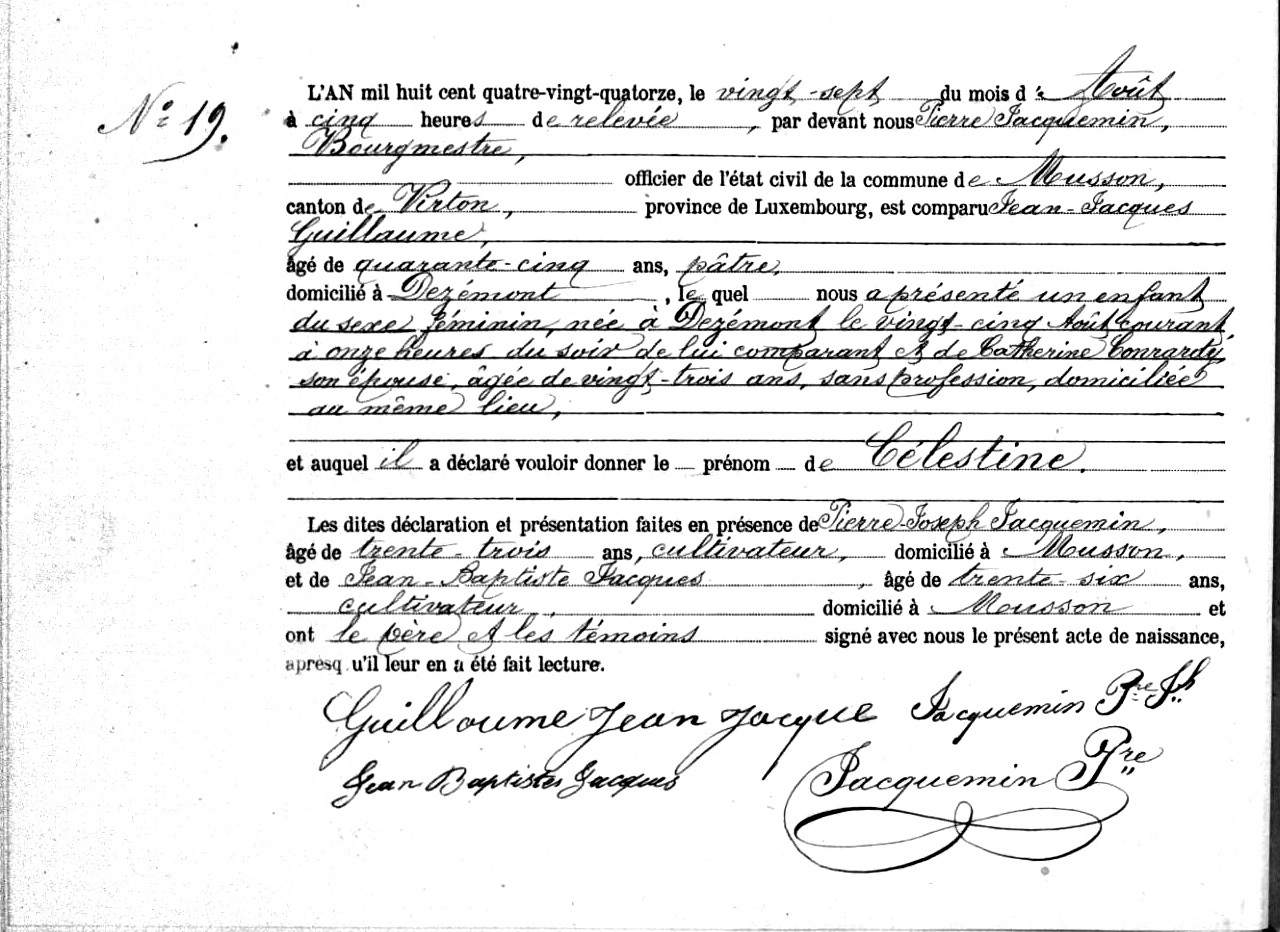 L'AN mil huit cent quatre-vingt-quatorze, le vingt-sept du mois d'Août
N° 19.
à cinq heures de relevée, par devant nous Pierre Jacquemin,
Bourgmestre,
officier de l'état civil de la commune de Musson,
canton de Virton, province de Luxembourg, est comparu Jean-Jacques
Guillaume,
âgé de quarante-cinq ans, pâtre,
domicilié à Dezémont, le quel nous a présenté un enfant
du sexe féminin, née à Dezémont le vingt-cinq Août courant,
à onze heures du soir de lui comparant et de Catherine Conrardy,
son épouse, âgée de vingt-trois ans, sans profession, domiciliée
au même lieu,
et auquel il a déclaré vouloir donner le prénom de Célestine.
Les dites déclaration et présentation faites en présence de Pierre-Joseph Jacquemin,
âgé de trente-trois ans, cultivateur, domicilié à Musson,
et de Jean-Baptiste Jacques, âgé de trente-six ans,
cultivateur, domicilié à Mousson et
ont le père et les témoins signé avec nous le présent acte de naissance,
après q u'il leur en a été fait lecture.
Guillaume Jean Jacque Jacquemin Pre Jh
Jean Baptistes Jacques Jacquemin Pre